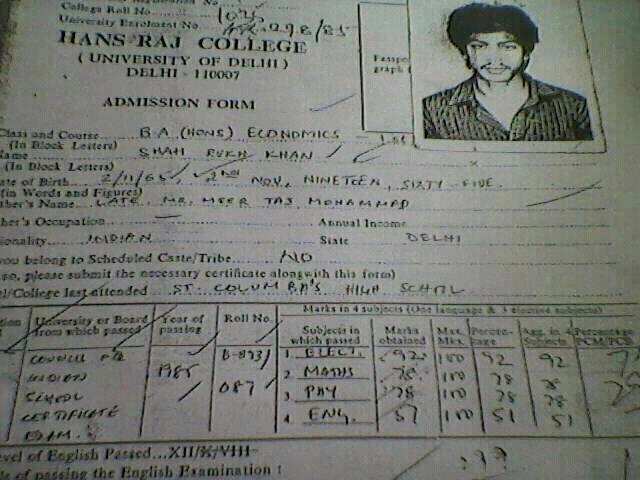 College Roll No.
University Enrolment No. 298/85
HANS RAJ COLLEGE
( UNIVERSITY OF DELHI )
DELHI - 110007
ADMISSION FORM
Class and Course B.A (HONS) ECONOMICS
(In Block Letters)
Name SHAH RUKH KHAN
(In Block Letters)
ate of Birth 2/11/65, 2ND NOV, NINETEEN, SIXTY-FIVE.
(in Words and Figures)
ther's Name LATE MR. MEER TAJ MOHAMMAD
her's Occupation — Annual Income
ionality INDIAN State DELHI
you belong to Scheduled Caste/Tribe NO
so, please submit the necessary certificate alongwith this form)
l/College last attended ST. COLUMBA'S HIGH SCHOOL
University or Board from which passed
Year of passing
Roll No.
Marks in 4 subjects (One language & 3 elected subjects)
Subjects in which passed
Marks obtained
Max. Mks.
Percen- tage
Agg. in 4 Subjects
Percentage PCM/PCB
COUNCIL
INDIAN
SCHOOL
CERTIFICATE
EXAM.
1985
087
1. ELECT. 92 100 92 92
2. MATHS 78 100 78 78
3. PHY 78 100 78 78
4. ENG. 51 100 51 51
evel of English Passed...XII/X/VIII
of passing the English Examination :